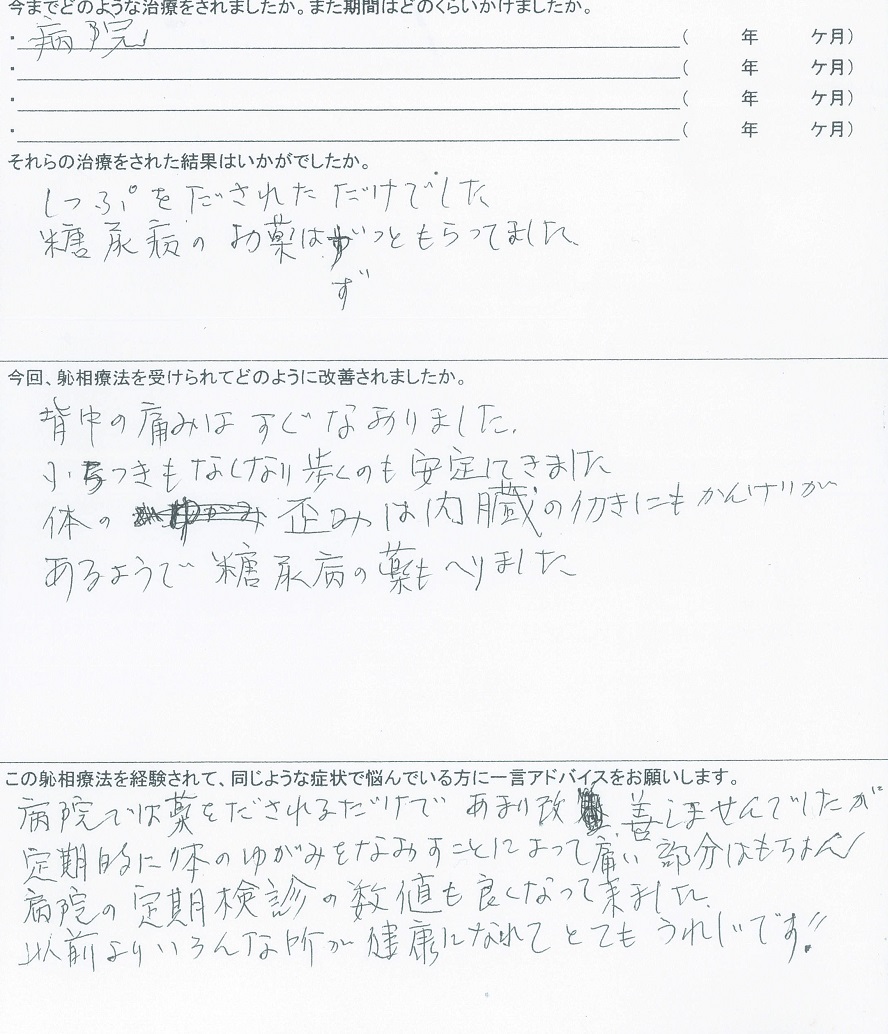 今までどのような治療をされましたか。また期間はどのくらいかけましたか。
・病院 ( 年 ケ月)
・ ( 年 ケ月)
・ ( 年 ケ月)
・ ( 年 ケ月)
それらの治療をされた結果はいかがでしたか。
しっぷをだされただけでした
糖尿病のお薬はずっともらってました。
ず
今回、躰相療法を受けられてどのように改善されましたか。
背中の痛みはすぐなおりました。
ふらつきもなくなり歩くのも安定してきました
体の 歪みは内臓の働きにもかんけいが
あるようで糖尿病の薬もへりました
この躰相療法を経験されて、同じような症状で悩んでいる方に一言アドバイスをお願いします。
病院では薬をだされるだけで あまり改善しませんでしたが
定期的に体のゆがみをなおすことによって痛い部分はもちろん
病院の定期検診の数値も良くなって来ました。
以前よりいろんな所が健康になれてとてもうれしいです!!